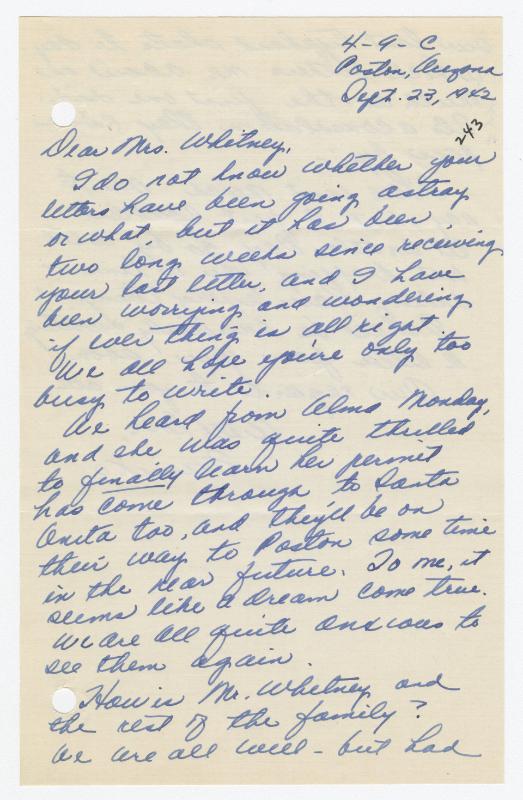 4-9-C
Poston, Arizona
Sept. 23, 1942
243
Dear Mrs. Whitney,
I do not know whether your
letters have been going astray
or what, but it has been
two long weeks since receiving
your last letter, and I have
been worrying and wondering
if ever thing is all right.
We all hope you're only too
busy to write.
We heard from Alma Monday,
and she was quite thrilled
to finally learn her permit
has come through to Santa
Anita too, and they'll be on
their way to Poston some time
in the near future. To me, it
seems like a dream come true.
We are all quite anxious to
see them again.
How is Mr. Whitney and
the rest of the family?
We are all well - but had